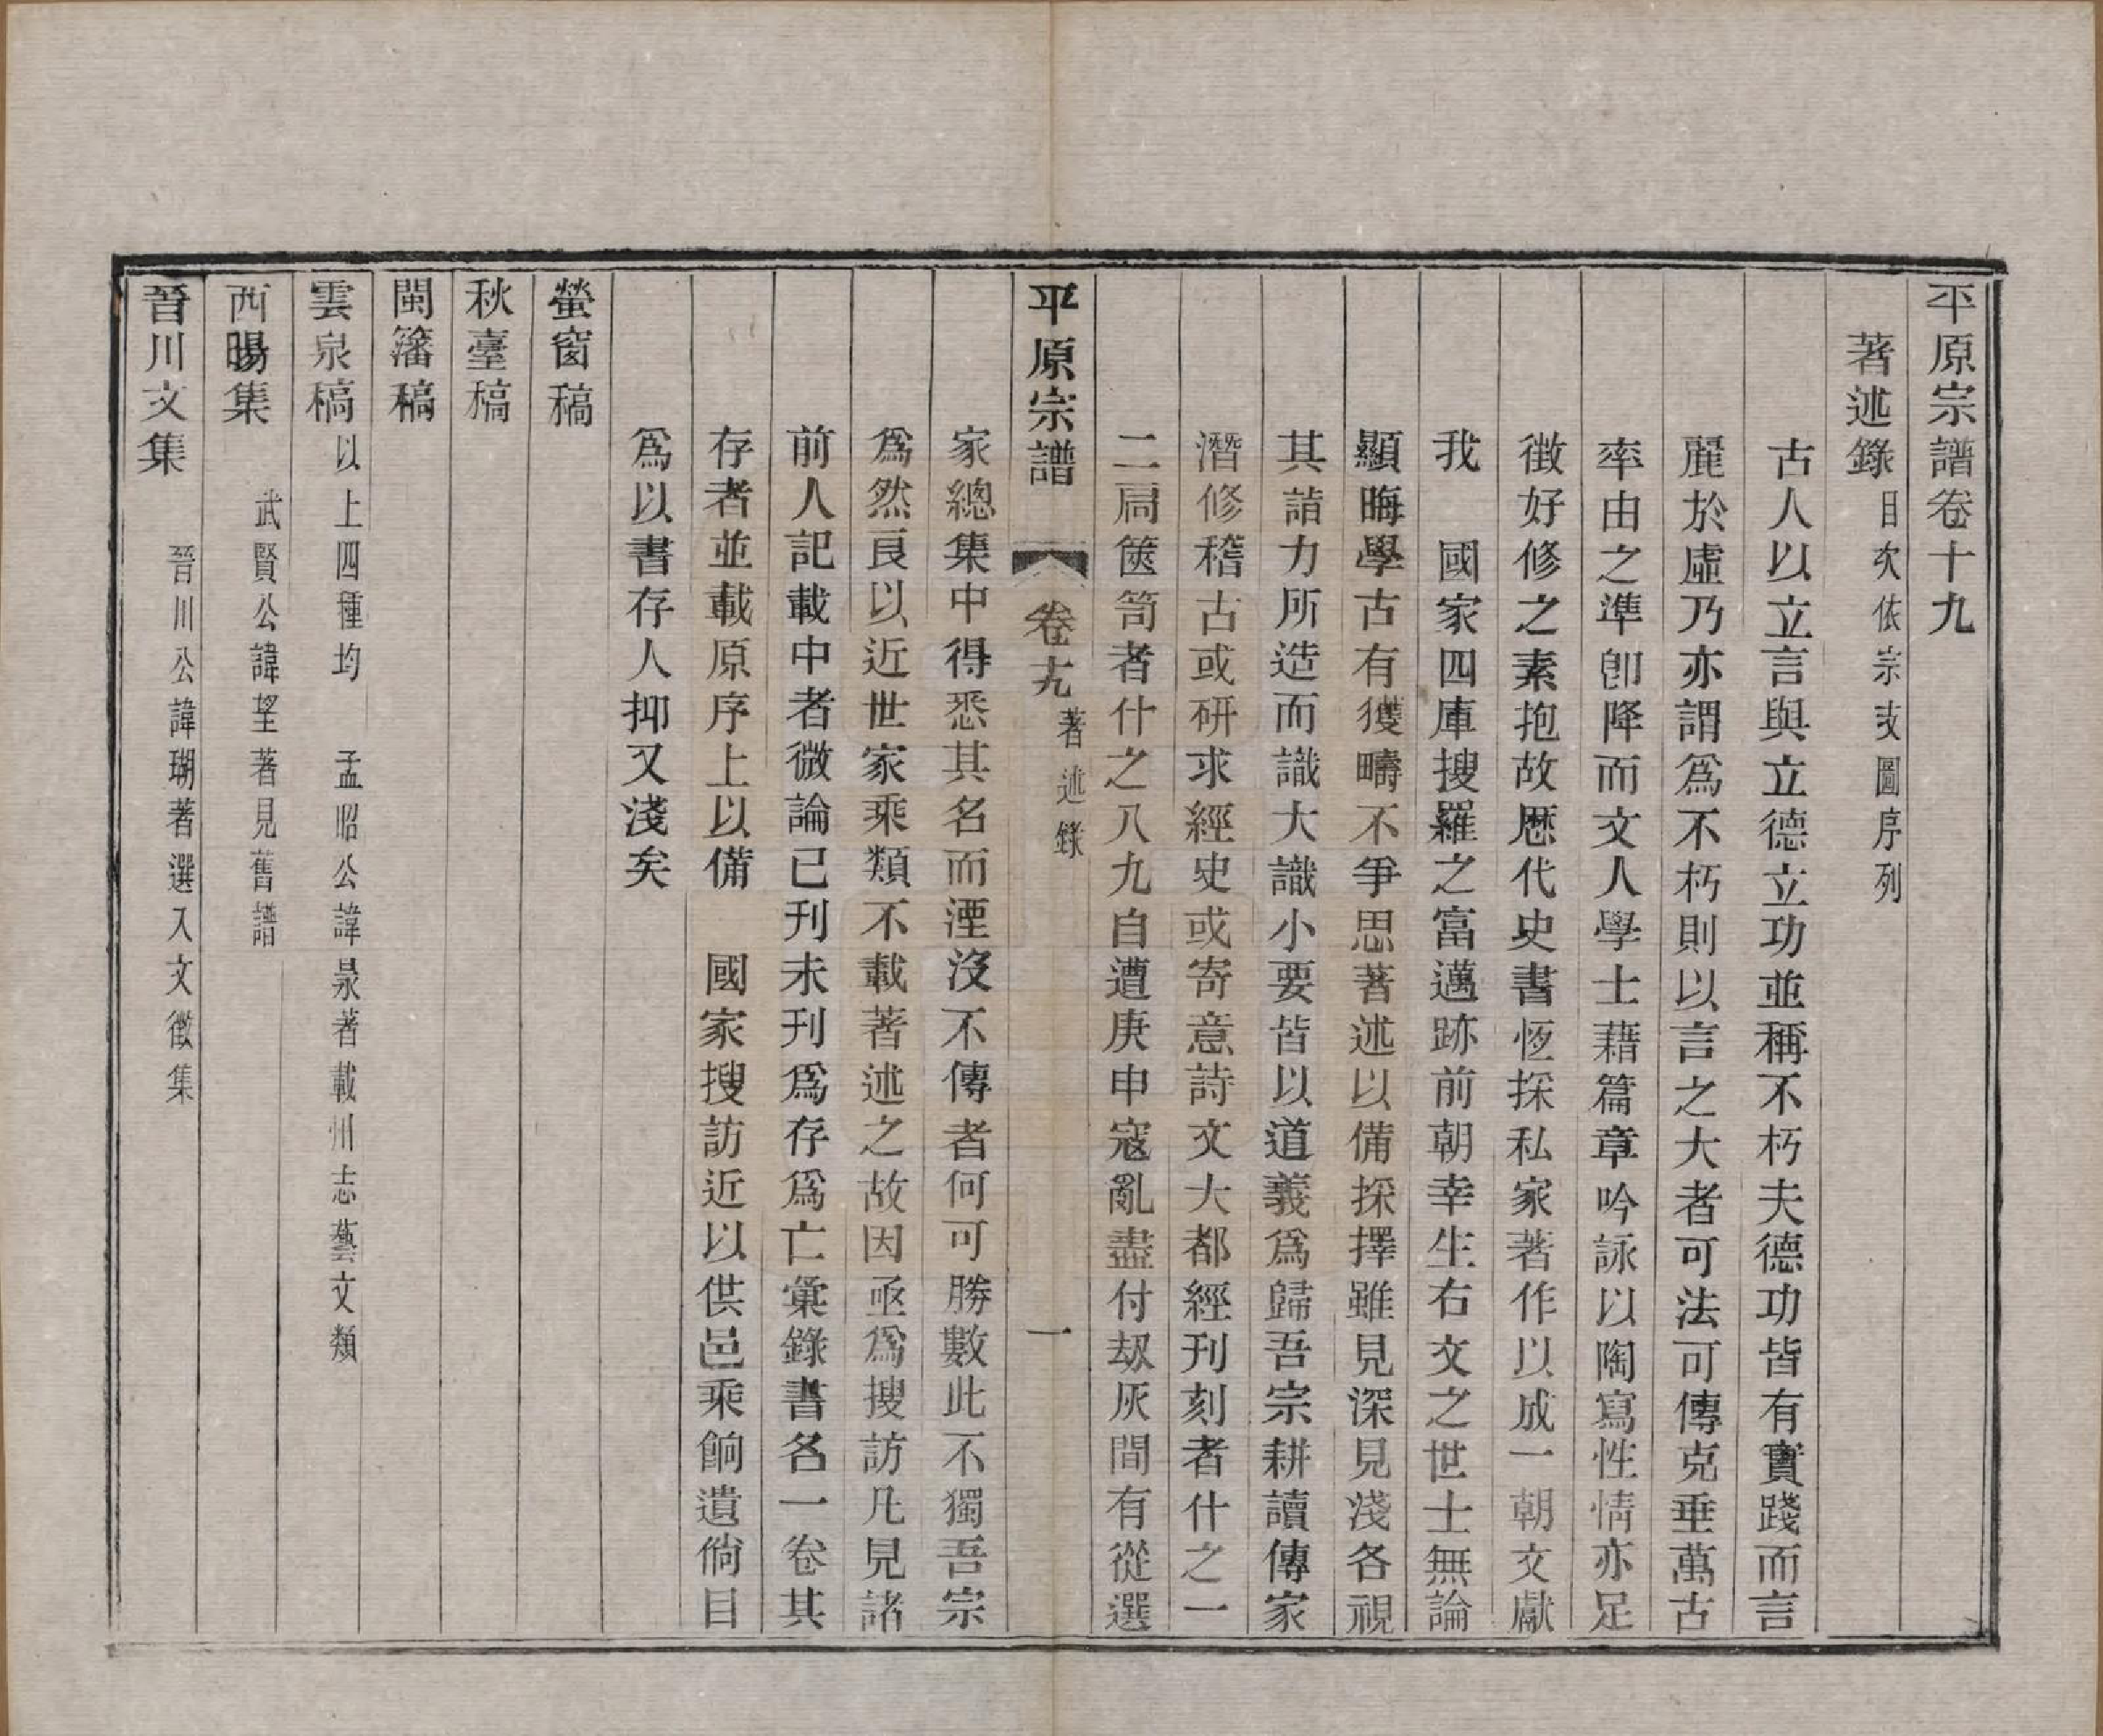 平原宗譜卷十九
著述錄目次依宗支圖序列
古人以立言與立德立功並稱不朽夫德功皆有實踐而言
麗於虛乃亦謂爲不朽則以言之大者可法可傳克垂萬古
率由之準卽降而文人學士藉篇章吟詠以陶寫性情亦足
徵好修之素抱故歷代史書恆採私家著作以成一朝文獻
我　國家四庫搜羅之富邁跡前朝幸生右文之世士無論
顯晦學古有獲疇不爭思著述以備採擇雖見深見淺各視
其詣力所造而識大識小要皆以道義爲歸吾宗耕讀傳家
潛修稽古或研求經史或寄意詩文大都經刊刻者什之一
二扃篋笥者什之八九自遭庚申寇亂盡付刼灰間有從選
平原宗譜　卷十九　著述錄　一
家總集中得悉其名而湮沒不傳者何可勝數此不獨吾宗
爲然良以近世家乘類不載著述之故因亟爲搜訪凡見諸
前人記載中者微論已刊未刊爲存爲亡彙錄書名一卷其
存者並載原序上以備　國家搜訪近以供邑乘餉遺倘目
爲以書存人抑又淺矣
螢窗稿
秋臺稿
閩籓稿
雲泉稿以上四種均　孟昭公諱㫤著載州志藝文類
西暘集　武賢公諱望著見舊譜
晉川文集　晉川公諱瑚著選入文徵集